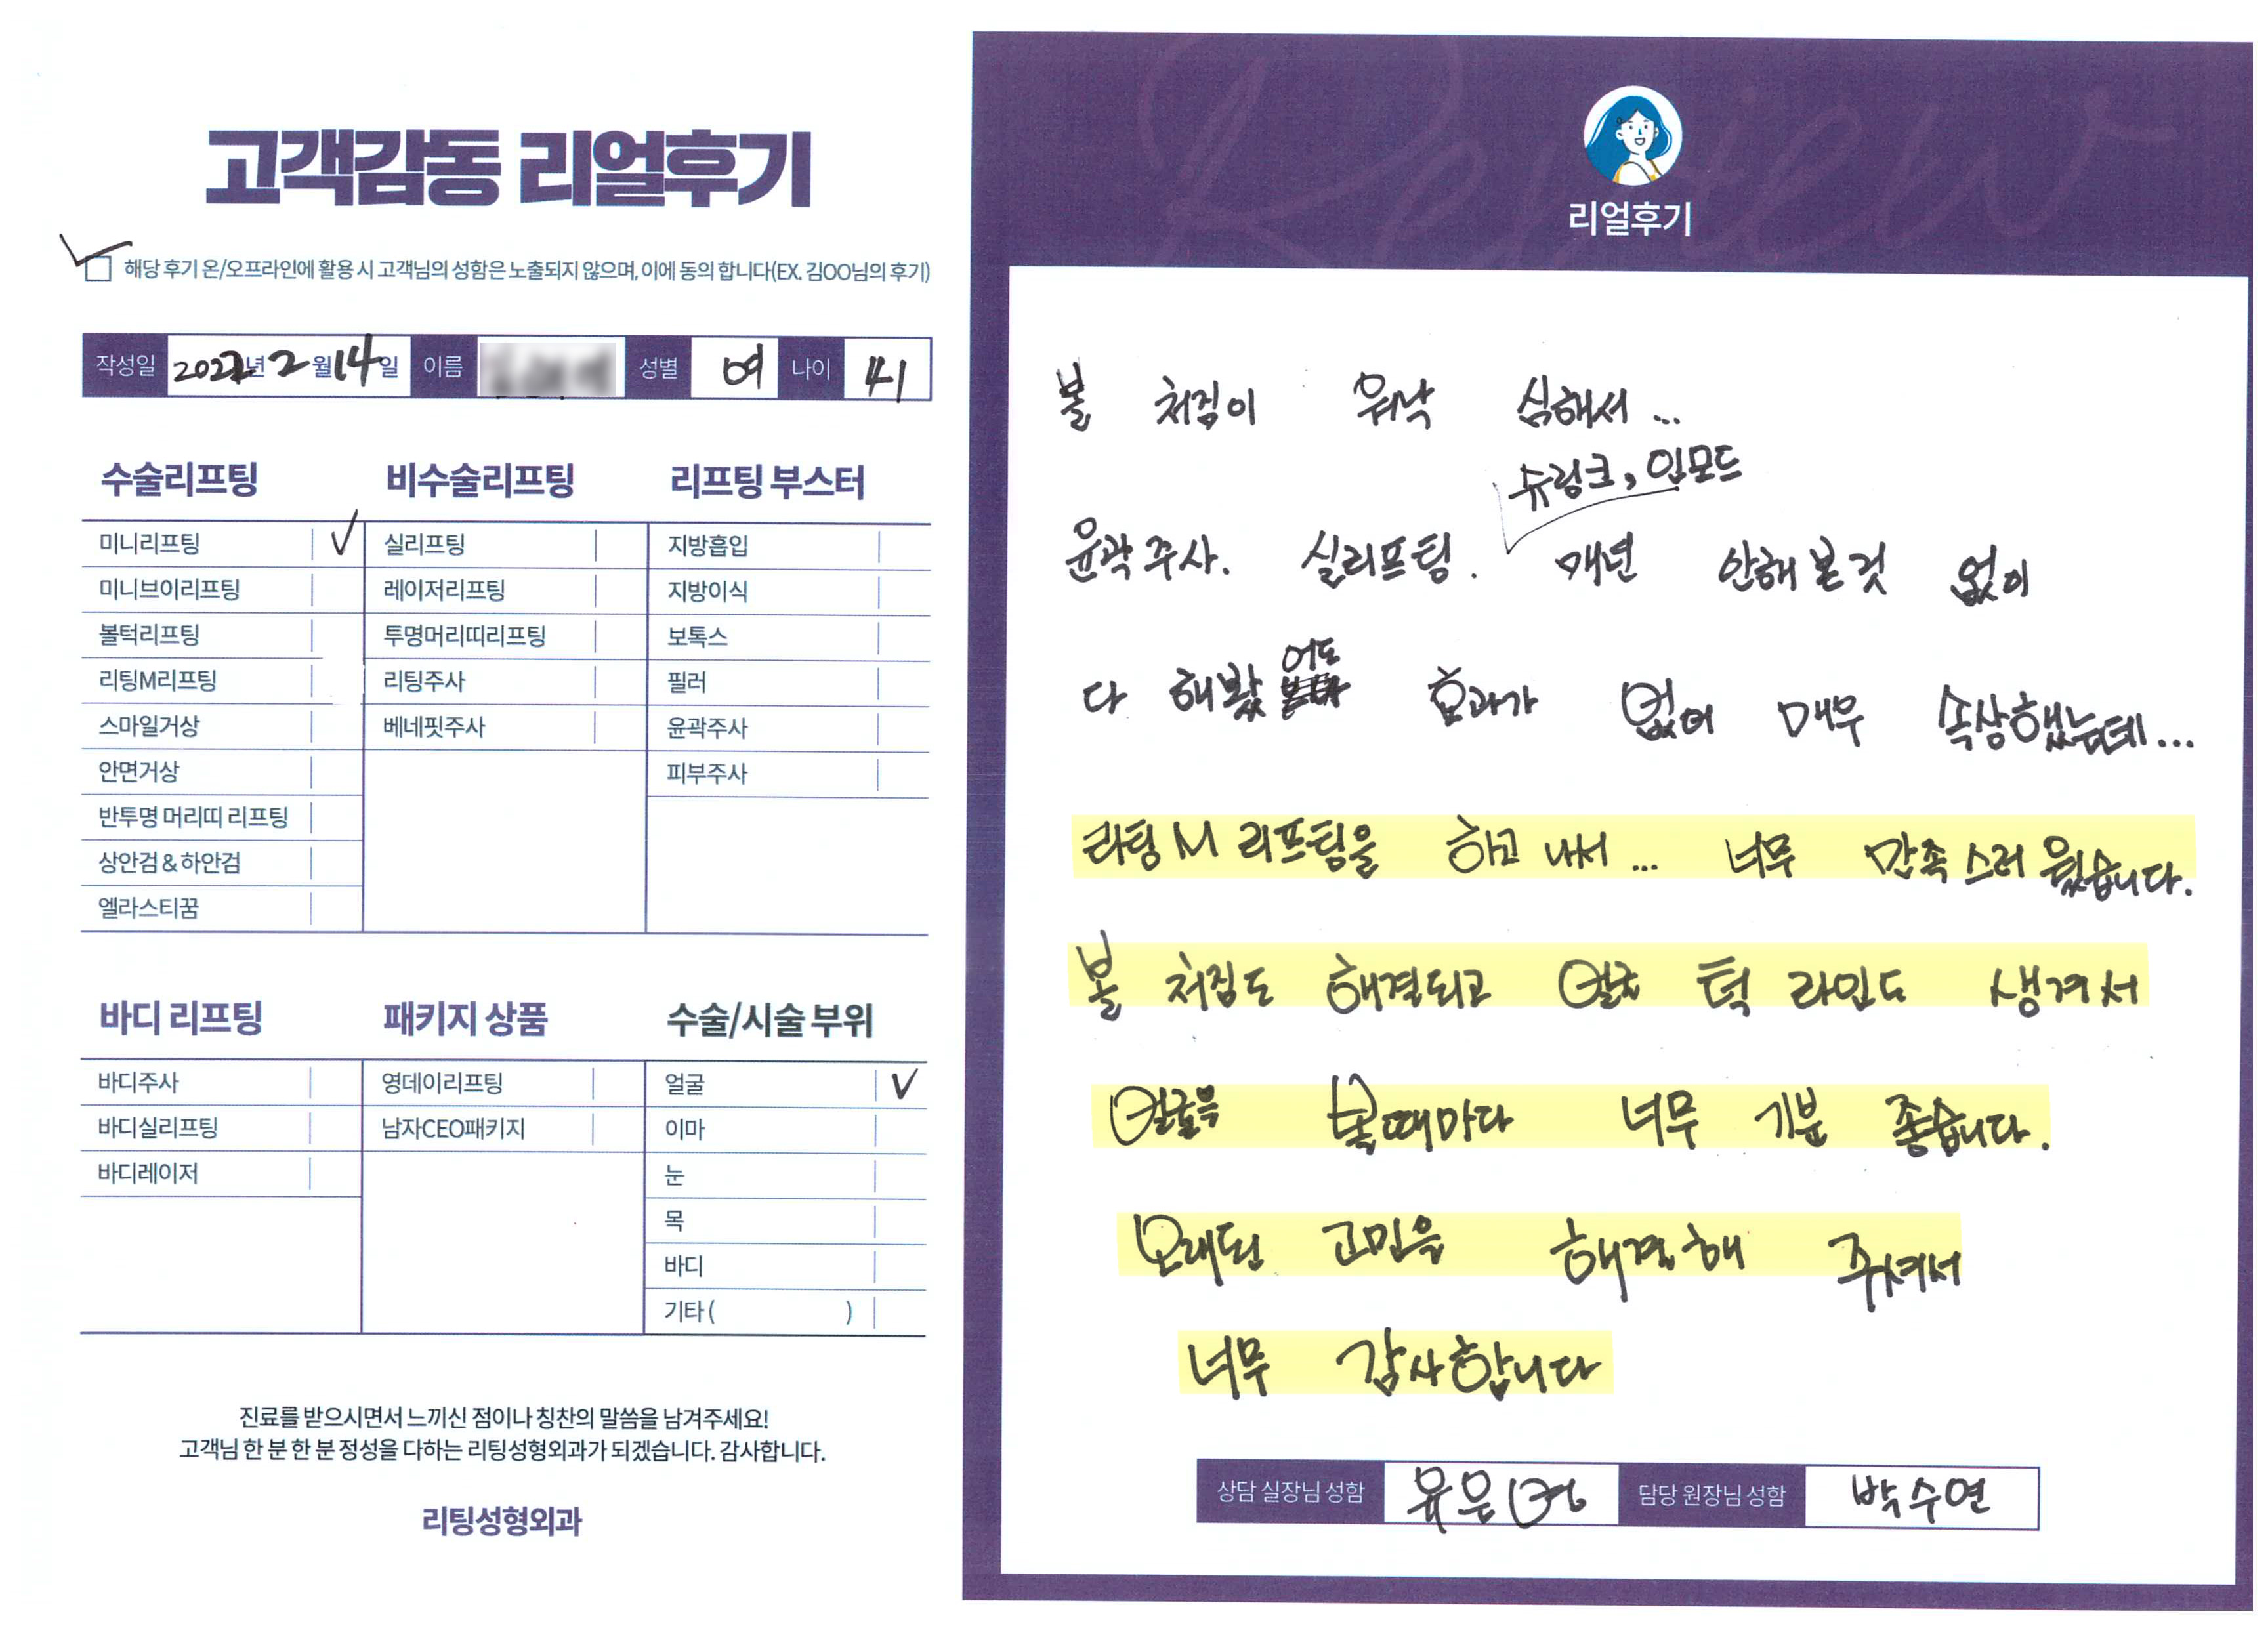 고객감동 리얼후기
해당 후기 온/오프라인에 활용 시 고객님의 성함은 노출되지 않으며, 이에 동의 합니다(EX. 김OO님의 후기)
작성일 2022년 2월 14일 이름 성별 여 나이 41
수술리프팅
미니리프팅
미니브이리프팅
볼턱리프팅
리팅M리프팅
스마일거상
안면거상
반투명 머리띠 리프팅
상안검 & 하안검
엘라스티꿈
비수술리프팅
실리프팅
레이저리프팅
투명머리띠리프팅
리팅주사
베네핏주사
리프팅 부스터
지방흡입
지방이식
보톡스
필러
윤곽주사
피부주사
바디 리프팅
바디주사
바디실리프팅
바디레이저
패키지 상품
영데이리프팅
남자CEO패키지
수술/시술 부위
얼굴
이마
눈
목
바디
기타 ( )
진료를 받으시면서 느끼신 점이나 칭찬의 말씀을 남겨주세요!
고객님 한 분 한 분 정성을 다하는 리팅성형외과가 되겠습니다. 감사합니다.
리팅성형외과
Review
리얼후기
볼 처짐이 워낙 심해서...
슈링크, 인모드
윤곽주사. 실리프팅. 매년 안해본것 없이
다 해봤어도 효과가 없어 매우 속상했는데...
리팅 M 리프팅을 하고 나서... 너무 만족스러웠습니다.
볼 처짐도 해결되고 얼굴 턱 라인도 생겨서
얼굴을 볼때마다 너무 기분 좋습니다.
오래된 고민을 해결해 주셔서
너무 감사합니다
상담 실장님 성함 유은 담당 원장님 성함 박수연